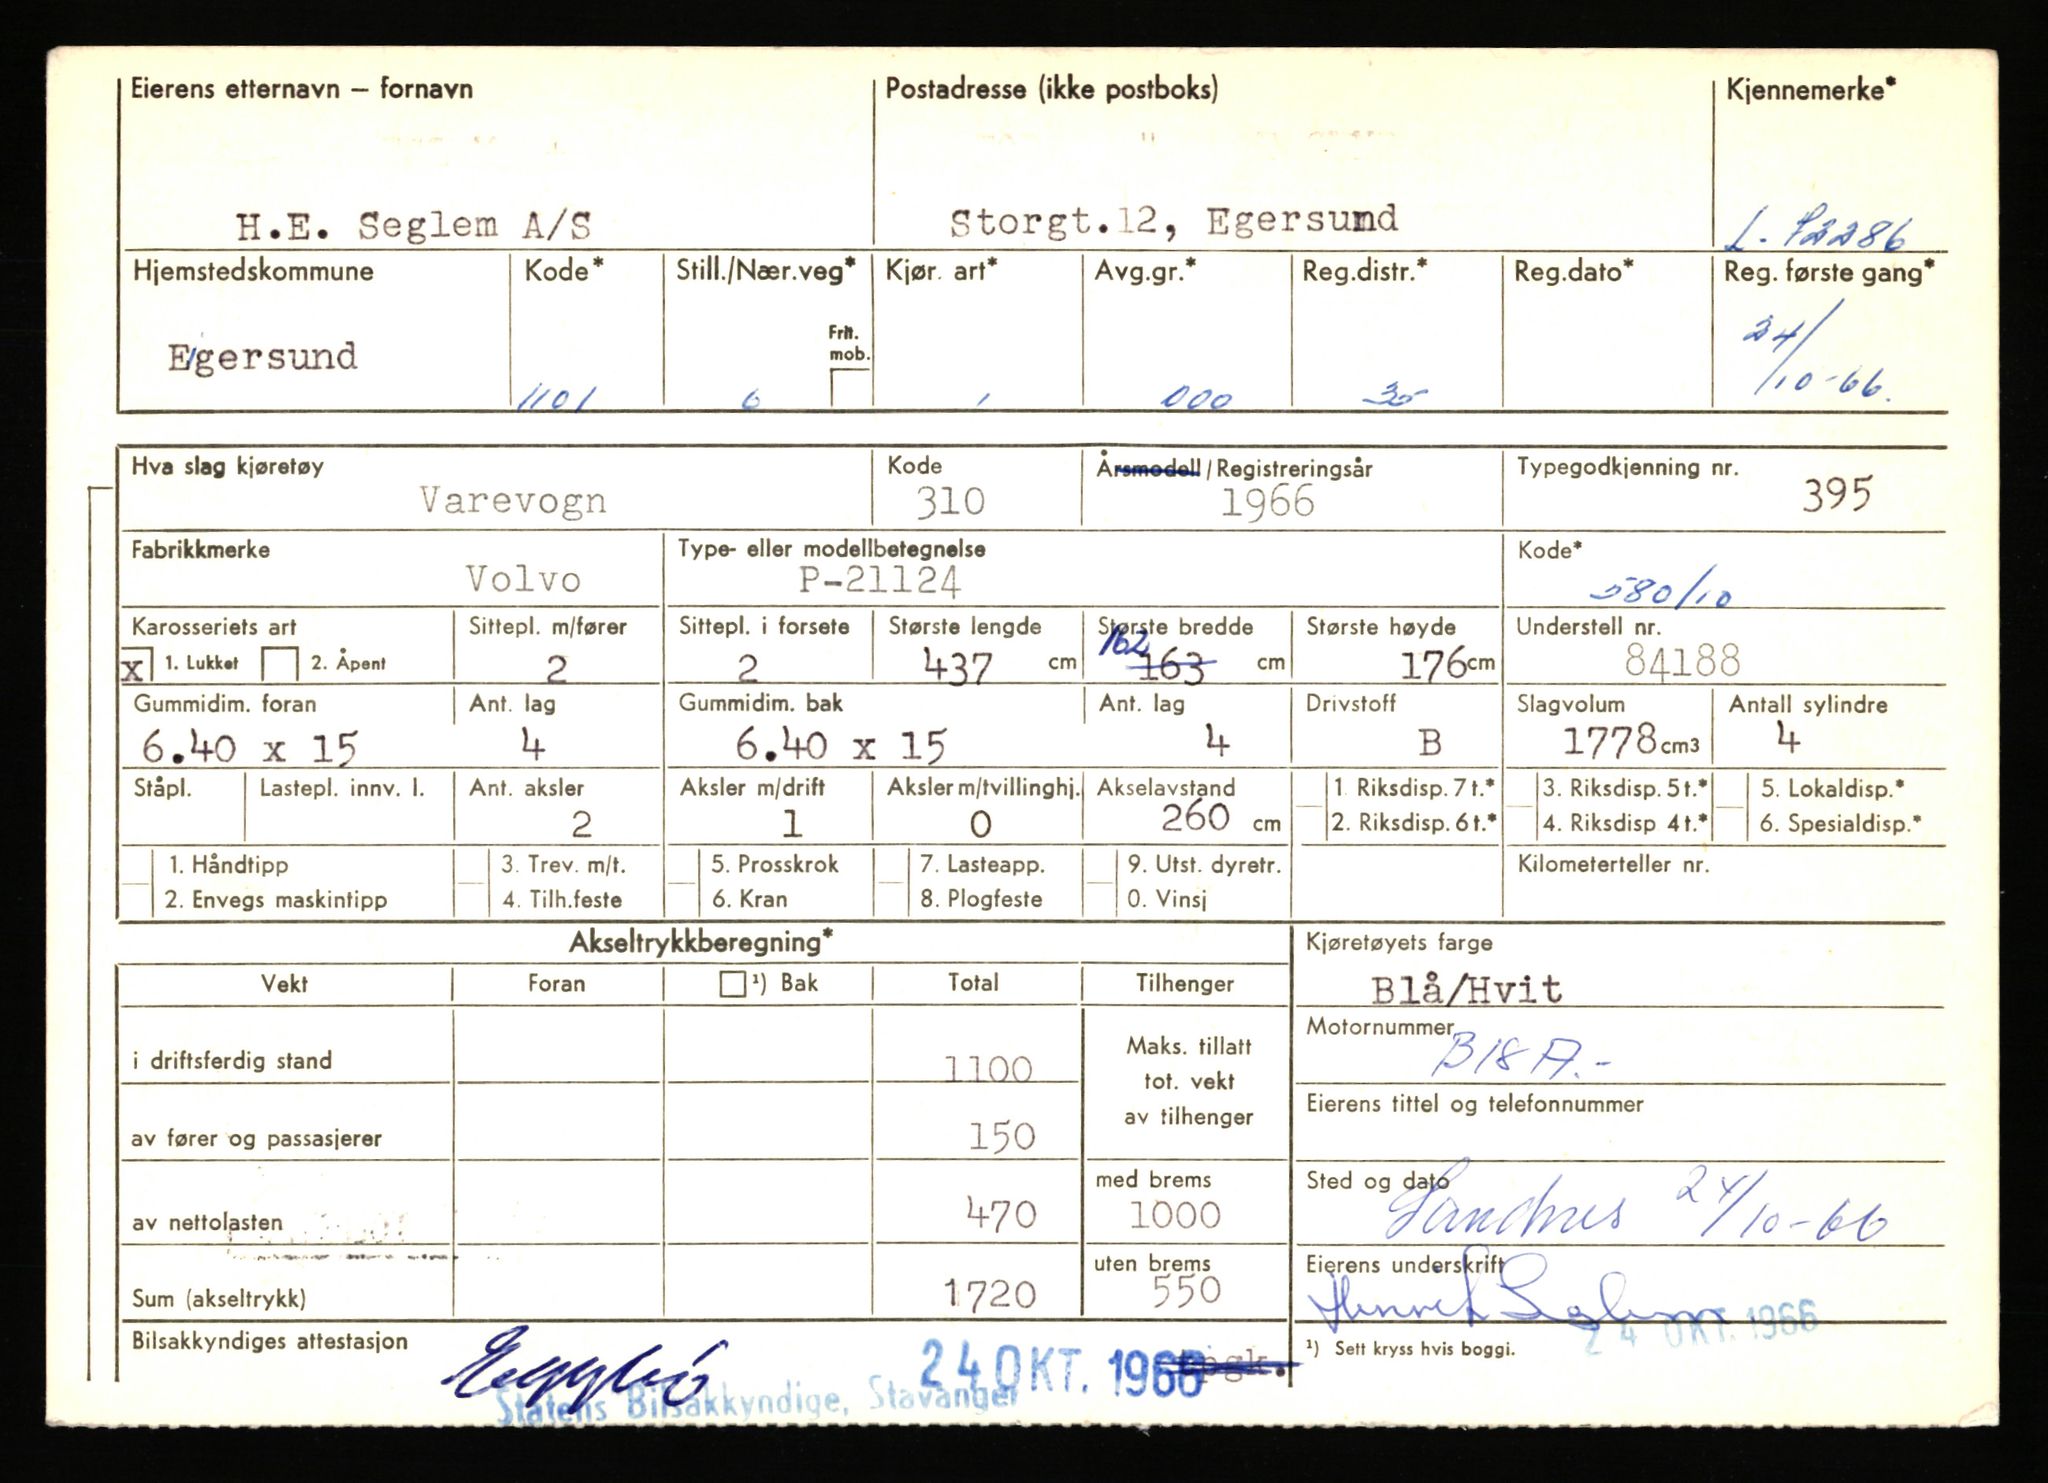 Eierens etternavn – fornavn   Postadresse (ikke postboks)   Kjennemerke*
H.E. Seglem A/S   Storgt.12, Egersund   L-
Hjemstedskommune   Kode*   Still./Nær.veg*   Kjør. art*   Avg.gr.*   Reg.distr.*   Reg.dato*   Reg. første gang*
Frit. mob.
Egersund   1101   6   1   000   35   24/10-66.
Hva slag kjøretøy   Kode   Årsmodell/Registreringsår   Typegodkjenning nr.
Varevogn   310   1966   395
Fabrikkmerke   Type- eller modellbetegnelse   Kode*
Volvo   P-21124   580/10
Karosseriets art   Sittepl. m/fører   Sittepl. i forsete   Største lengde   Største bredde   Største høyde   Understell nr.
x 1. Lukket   2. Åpent   2   2   437 cm   162 163 cm   176 cm   84188
Gummidim. foran   Ant. lag   Gummidim. bak   Ant. lag   Drivstoff   Slagvolum   Antall sylindre
6.40 x 15   4   6.40 x 15   4   B   1778 cm3   4
Ståpl.   Lastepl. innv. l.   Ant. aksler   Aksler m/drift   Aksler m/tvillinghj.   Akselavstand   1 Riksdisp. 7 t.*   3. Riksdisp. 5 t.*   5. Lokaldisp.*
2   1   0   260 cm   2. Riksdisp. 6 t.*   4. Riksdisp 4 t.*   6. Spesialdisp.*
1. Håndtipp   3. Trev. m/t.   5. Prosskrok   7. Lasteapp.   9. Utst. dyretr.   Kilometerteller nr.
2. Envegs maskintipp   4. Tilh.feste   6. Kran   8. Plogfeste   0. Vinsj
Akseltrykkberegning*   Kjøretøyets farge
Vekt   Foran   ¹) Bak   Total   Tilhenger   Blå/Hvit
Motornummer
B18A.-
i driftsferdig stand   1100   Maks. tillatt tot. vekt av tilhenger
Eierens tittel og telefonnummer
av fører og passasjerer   150
med brems   Sted og dato
av nettolasten   470   1000   Sandnes 24/10-66
uten brems   Eierens underskrift
Sum (akseltrykk)   1720   550   Henrik Seglem
24 OKT. 1966
Bilsakkyndiges attestasjon   24 OKT. 1966   ¹) Sett kryss hvis boggi.
Statens Bilsakkyndige, Stavanger